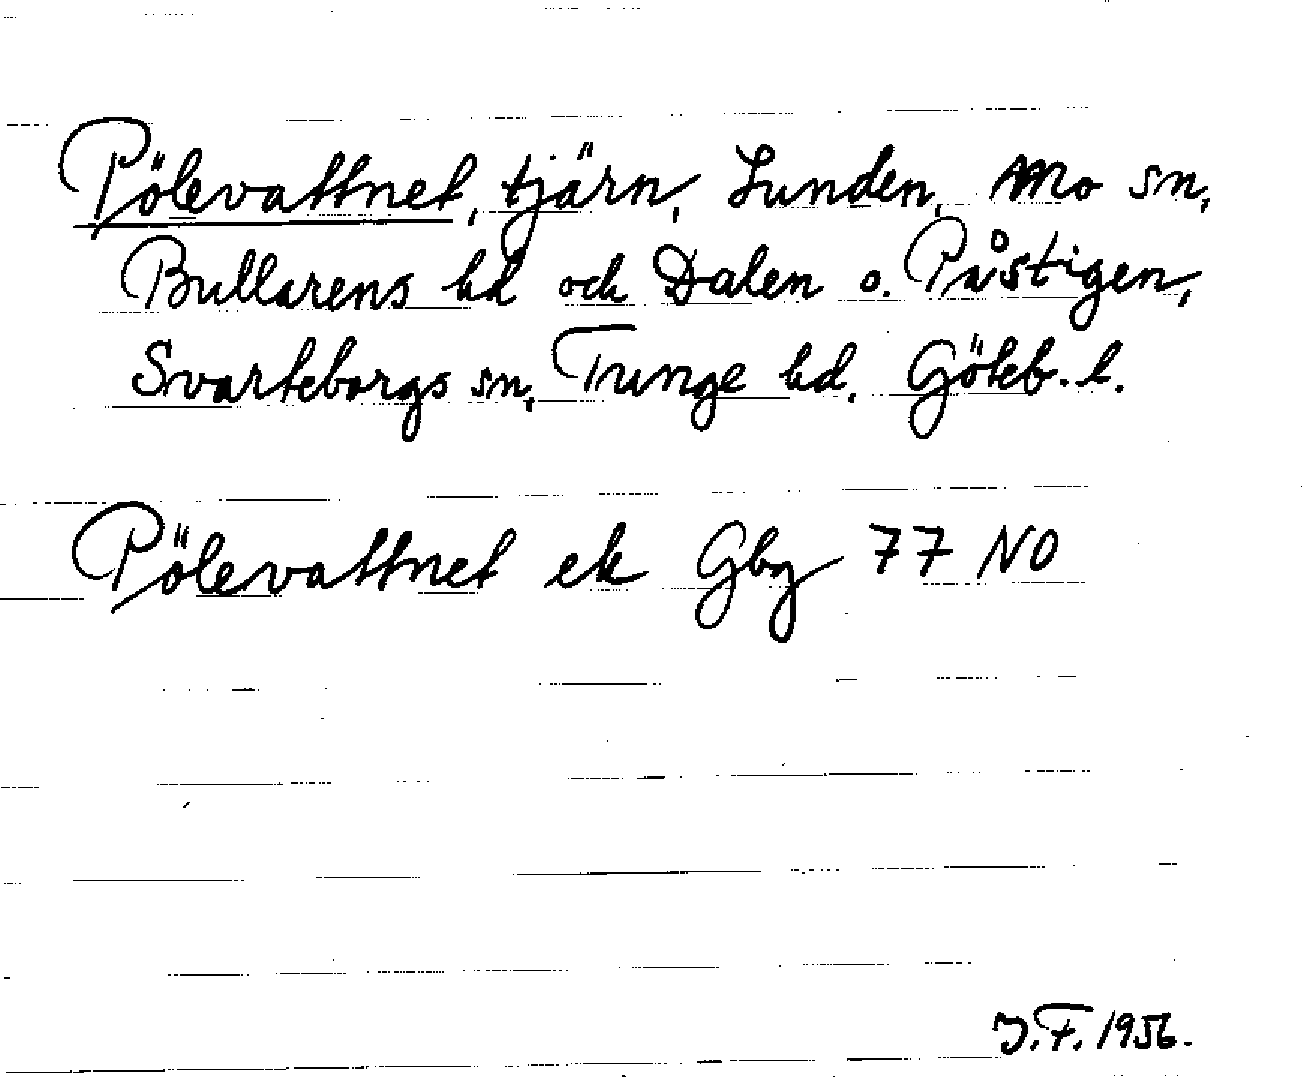 Pölevattnet, tjärn, Lunden, Mo sn,
Bullarens hd och Dalen o. Påstigen,
Svarteborgs sn, Tunge hd. Göteb. l.
Pölevattnet ek Gbg 77 NO
J.F. 1956.